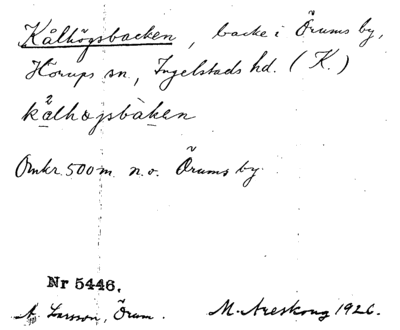 Kålhögsbacken, backe i Örums by,
Hörups sn, Ingelstads hd. (K.)
kålhøgsbàken
Omkr. 500 m. n.o. Örums by.
Nr 5446.
A. Larsson, Örum. M. Areskoug 1926.